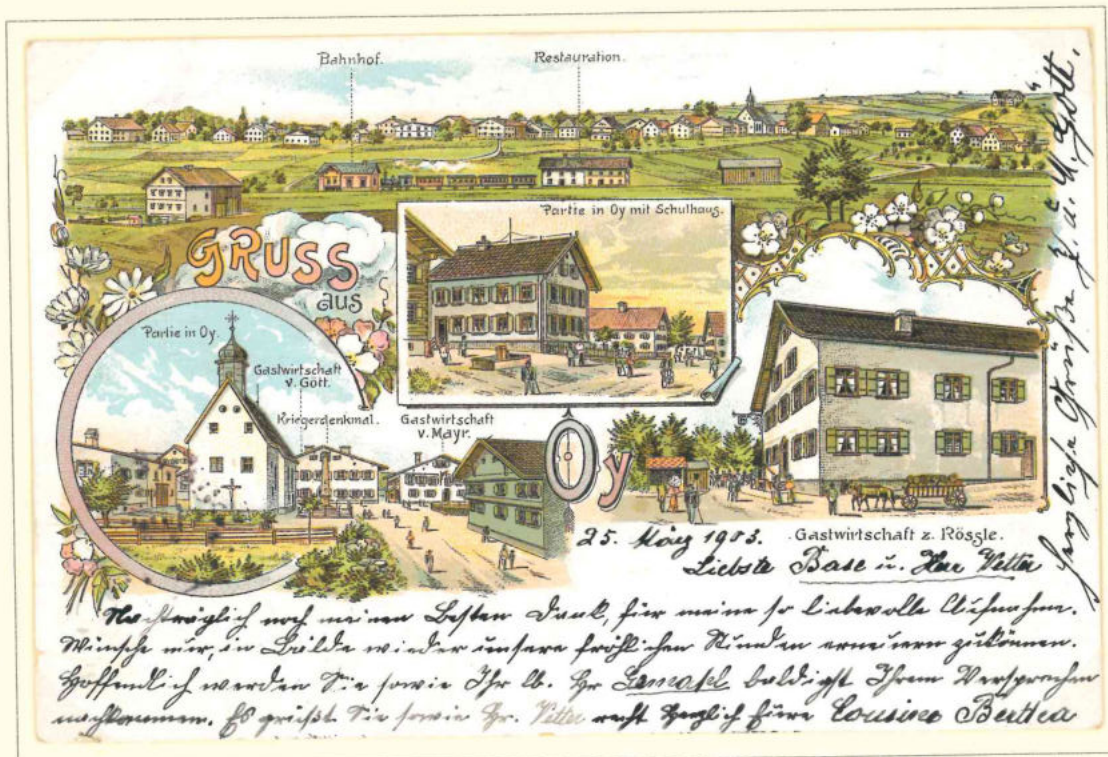 Bahnhof.
Restauration.
GRUSS
aus
Oy
Partie in Oy mit Schulhaus.
Partie in Oy.
Gastwirtschaft
v. Gött.
Kriegerdenkmal.
Gastwirtschaft
v. Mayr.
Gastwirtschaft z. Rössle.
25. März 1903.
Liebste Base u. Herr Vetter
Nachträglich noch meinen besten Dank, für meine so liebevolle Aufnahme.
Wünsche nur, in Bälde wieder unsere fröhlichen Stunden erneuern zukönnen.
Hoffendlich werden Sie sowie Ihr lb. Hr baldigst Ihrem Versprechen
nachkommen. Es grüßt Sie sowie Hr. Vetter recht herzlich Eure Cousine Bertha
Herzliche Grüße M. Gött.